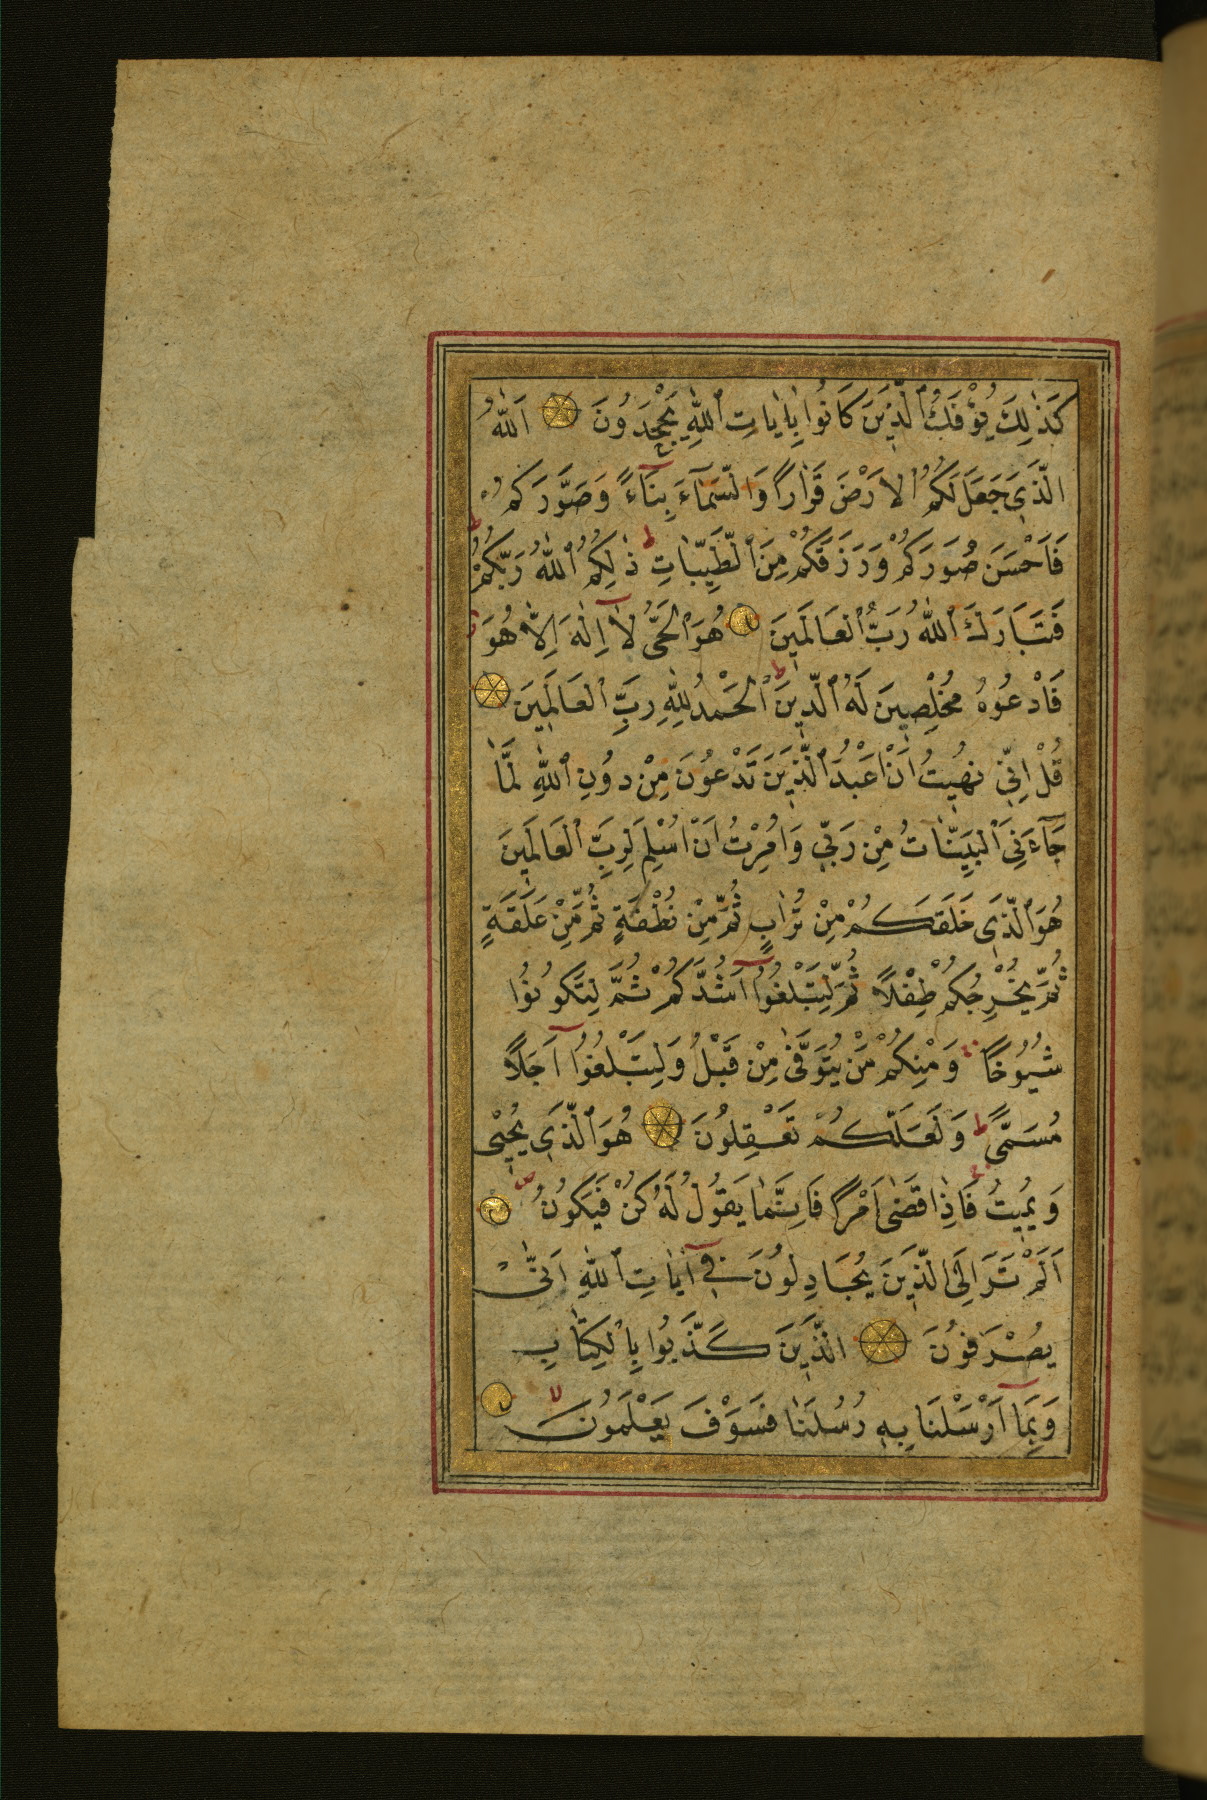 كَذٰلِكَ يُؤْفَكُ ٱلَّذِينَ كَانُوا بِاٰيَاتِ ٱللّٰهِ يَجْحَدُونَ اَللّٰهُ
الَّذِى جَعَلَ لَكُمُ الْاَرْضَ قَرَاراً وَالسَّمَآءَ بِنَآءً وَصَوَّرَكُمْ
فَاَحْسَنَ صُوَرَكُمْ وَرَزَقَكُمْ مِنَ ٱلطَّيِّبَاتِ ط ذٰلِكُمُ ٱللّٰهُ رَبُّكُمْ ط
فَتَبَارَكَ ٱللّٰهُ رَبُّ ٱلْعَالَمِينَ هُوَ ٱلْحَىُّ لَآ اِلٰهَ اِلَّا هُوَ
فَادْعُوهُ مُخْلِصِينَ لَهُ ٱلدِّينَ ط ٱلْحَمْدُ لِلّٰهِ رَبِّ ٱلْعَالَمِينَ
قُلْ اِنِّى نُهِيتُ اَنْ اَعْبُدَ ٱلَّذِينَ تَدْعُونَ مِنْ دُونِ ٱللّٰهِ لَمَّا
جَآءَنِىَ ٱلْبَيِّنَاتُ مِنْ رَبِّى وَاُمِرْتُ اَنْ اُسْلِمَ لِرَبِّ ٱلْعَالَمِينَ
هُوَ ٱلَّذِى خَلَقَكُمْ مِنْ تُرَابٍ ثُمَّ مِنْ نُطْفَةٍ ثُمَّ مِنْ عَلَقَةٍ
ثُمَّ يُخْرِجُكُمْ طِفْلاً ثُمَّ لِتَبْلُغُوٓا اَشُدَّكُمْ ثُمَّ لِتَكُونُوا
شُيُوخًا وَمِنْكُمْ مَنْ يُتَوَفّٰى مِنْ قَبْلُ وَلِتَبْلُغُوٓا اَجَلًا
مُسَمًّى ط وَلَعَلَّكُمْ تَعْقِلُونَ هُوَ ٱلَّذِى يُحْيِى
وَيُمِيتُ فَاِذَا قَضٰى اَمْرًا فَاِنَّمَا يَقُولُ لَهُ كُنْ فَيَكُونُ
اَلَمْ تَرَ اِلَى ٱلَّذِينَ يُجَادِلُونَ فِىٓ اٰيَاتِ ٱللّٰهِ اَنّٰى
يُصْرَفُونَ الَّذِينَ كَذَّبُوا بِالْكِتَابِ
وَبِمَآ اَرْسَلْنَا بِهِ رُسُلَنَا فَسَوْفَ يَعْلَمُونَ